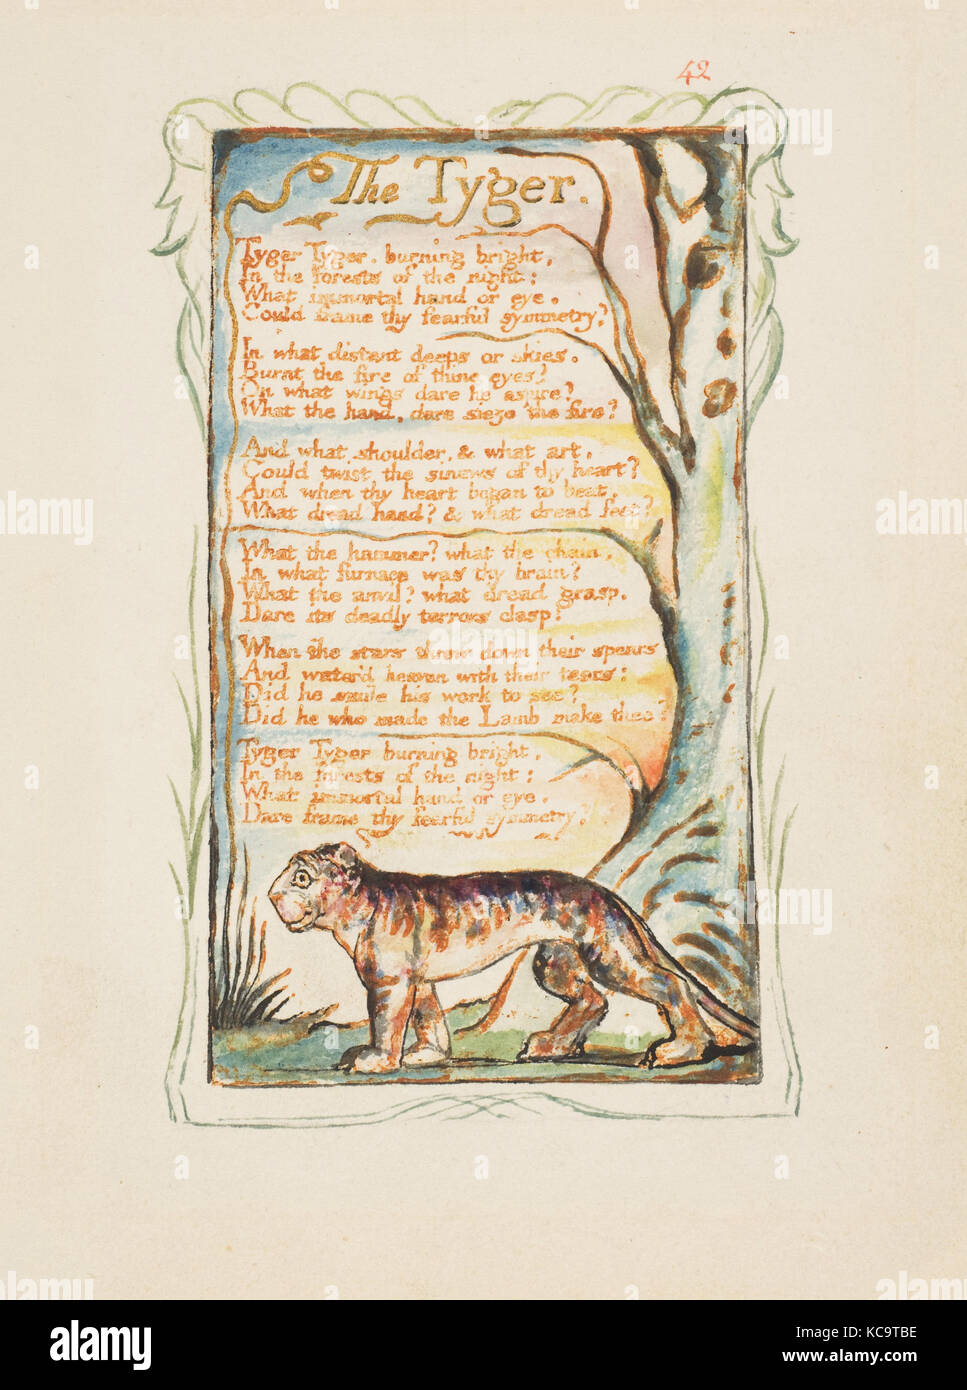 42
The Tyger.
Tyger Tyger. burning bright,
In the forests of the night:
What immortal hand or eye.
Could frame thy fearful symmetry?
In what distant deeps or skies.
Burnt the fire of thine eyes?
On what wings dare he aspire?
What the hand, dare sieze the fire?
And what shoulder, & what art,
Could twist the sinews of thy heart?
And when thy heart began to beat,
What dread hand? & what dread feet?
What the hammer? what the chain,
In what furnace was thy brain?
What the anvil? what dread grasp,
Dare its deadly terrors clasp!
When the stars threw down their spears
And water'd heaven with their tears:
Did he smile his work to see?
Did he who made the Lamb make thee?
Tyger Tyger burning bright,
In the forests of the night:
What immortal hand or eye,
Dare frame thy fearful symmetry?
alamy
Image ID: KC9TBE
www.alamy.com